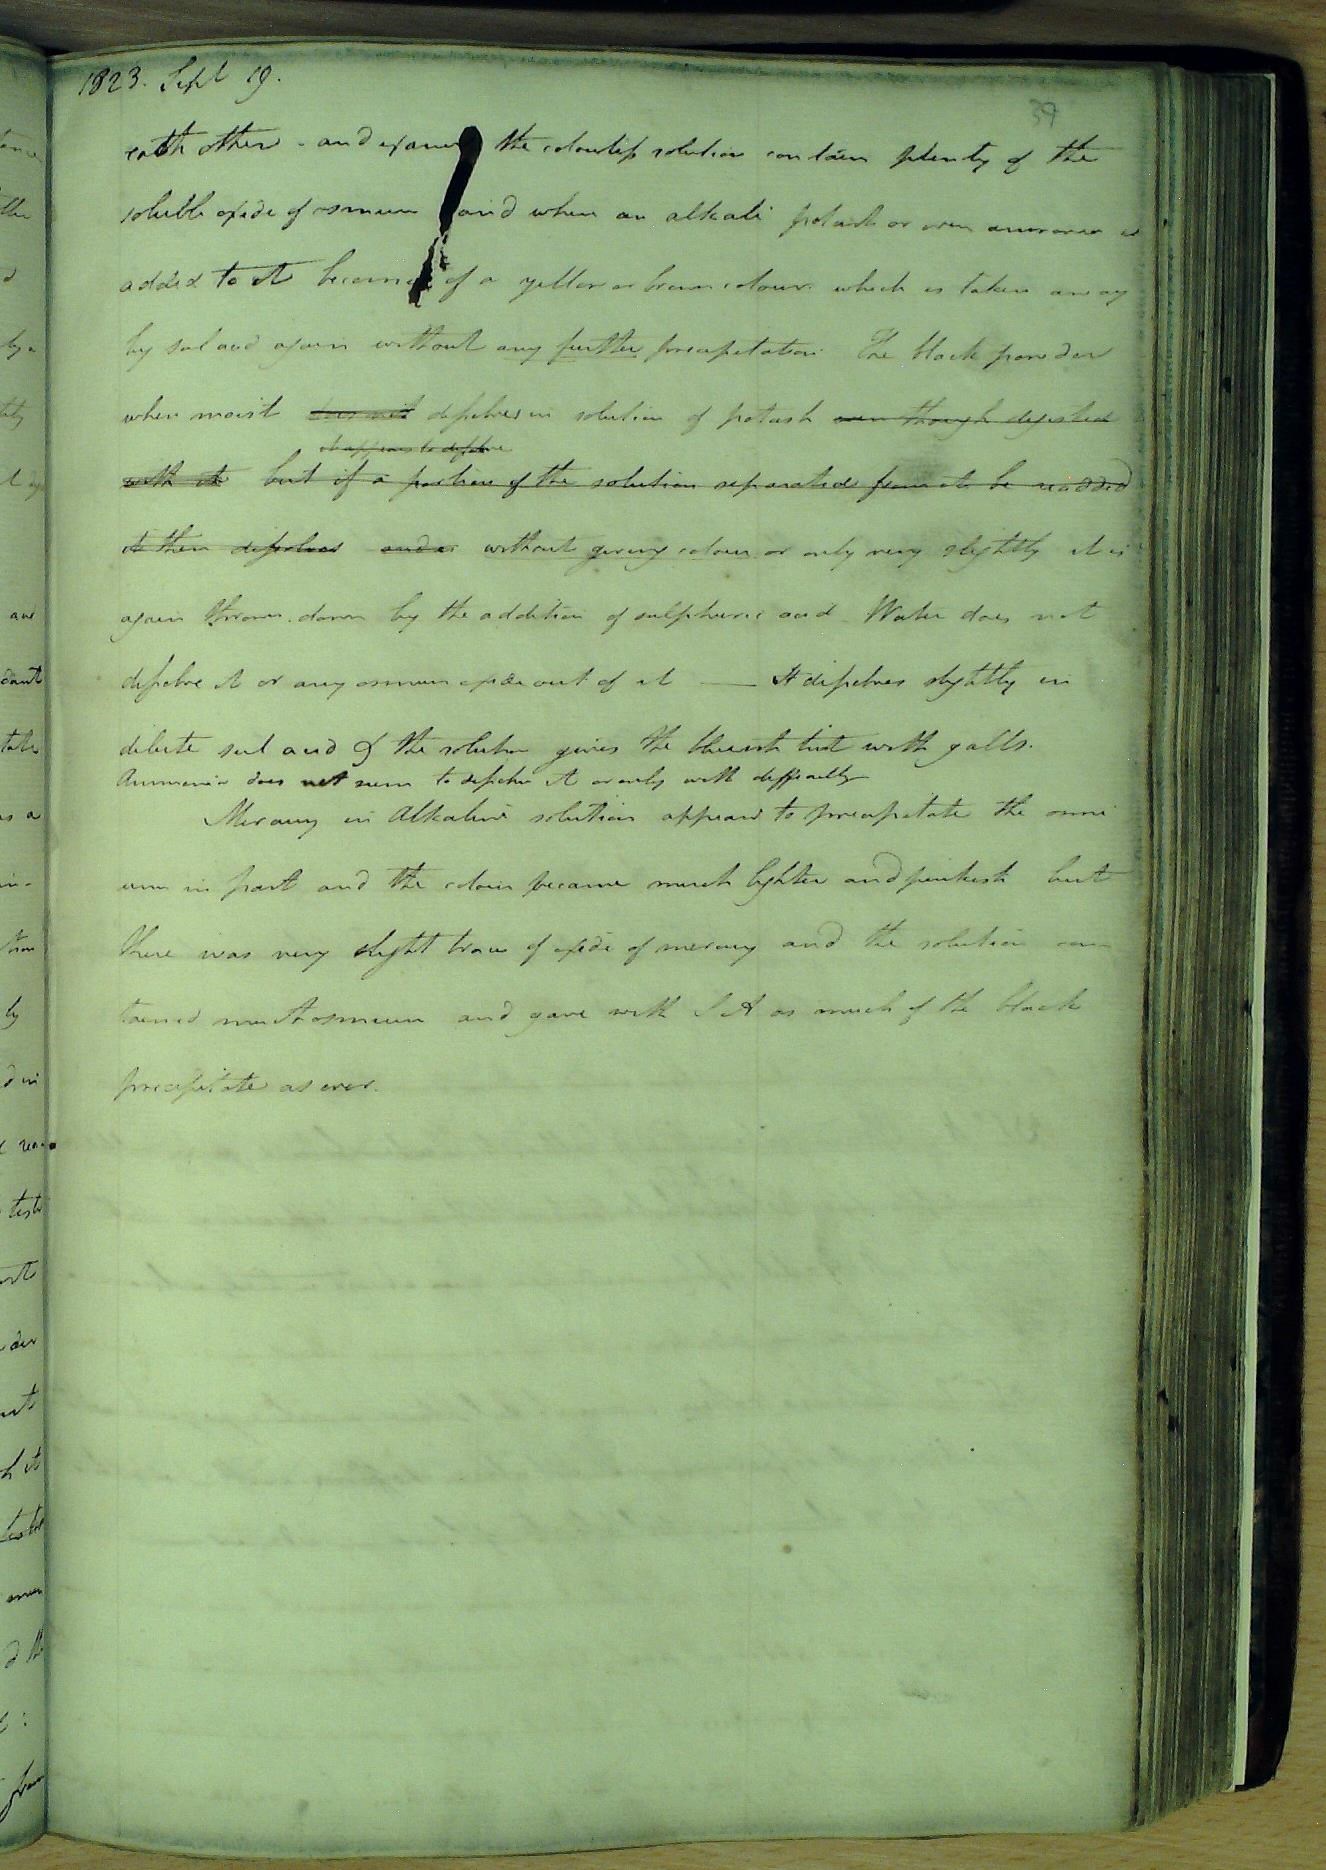 1823. Sept 19.
39
each other - and examd the colourless solution contain plenty of the
soluble oxide of osmium and when an alkali potash or even ammonia is
added to it becomes of a yellow or brown colour which is taken away
by sul acid again without any further precipitation The black powder
when moist does not dissolves in solution of potash even though digested
it appears to dissolve
with it but if a portion of the solution separated from it be readded
it then dissolves and is without giving colour or only very slightly it is
again thrown down by the addition of sulphuric acid Water does not
dissolve it or any osmium oxide out of it — It dissolves slightly in
dilute sul acid & the solution gives the blueish tint with galls.
Ammonia does not seem to dissolve it or only with difficulty
Mercury in Alkaline solution appears to precipitate the osmi
um in part and the colour became much lighter and pinkish but
there was very slight trace of oxide of mercury and the solution con
tained much osmium and gave with S A as much of the black
precipitate as ever.